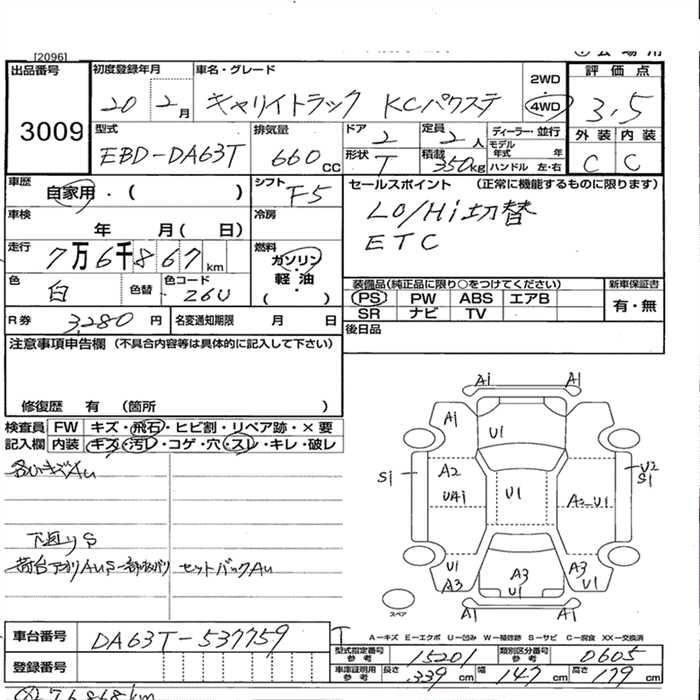 [2096]
出品番号 3009
初度登録年月 20 2月
車名・グレード キャリイトラック KCパワステ
2WD 4WD
評価点 3.5
外装 内装
C C
型式 EBD-DA63T
排気量 660 CC
ドア 2
定員 2人
ディーラー・並行
形状 T
積載 350kg
モデル年式 年
ハンドル 左・右
車歴 自家用・( )
シフト F5
セールスポイント (正常に機能するものに限ります)
LO/Hi切替
ETC
車検 年 月( 日)
冷房
走行 7万6千867km
燃料 ガソリン・軽油・( )
色 白
色替
色コード 26U
装備品(純正品に限り○をつけてください)
新車保証書
PS PW ABS エアB
有・無
SR ナビ TV
R券 3,280円
名変通知期限 月 日
後日品
注意事項申告欄 (不具合内容等は具体的に記入して下さい)
修復歴 有 (箇所 )
検査員記入欄
FW キズ・飛石・ヒビ割・リペア跡・×要
内装 キズ・汚レ・コゲ・穴・スレ・キレ・破レ
各いキズAu
下廻りS
荷台アオリAuS
セットバックAu
A1 A1
A1 U1
S1 A2 UA1 U1 A2 U1 U2 S1
U1 A3 A3 U1 A3 U1
A1 A1
スペア
A—キズ E—エクボ U—凹み W—補修跡 S—サビ C—腐食 XX—交換済
車台番号 DA63T-537759
型式指定番号 参考 15201
類別区分番号 参考 0605
登録番号
車庫証明用 参考 長さ 339cm 幅 147cm 高さ 179cm
76868km